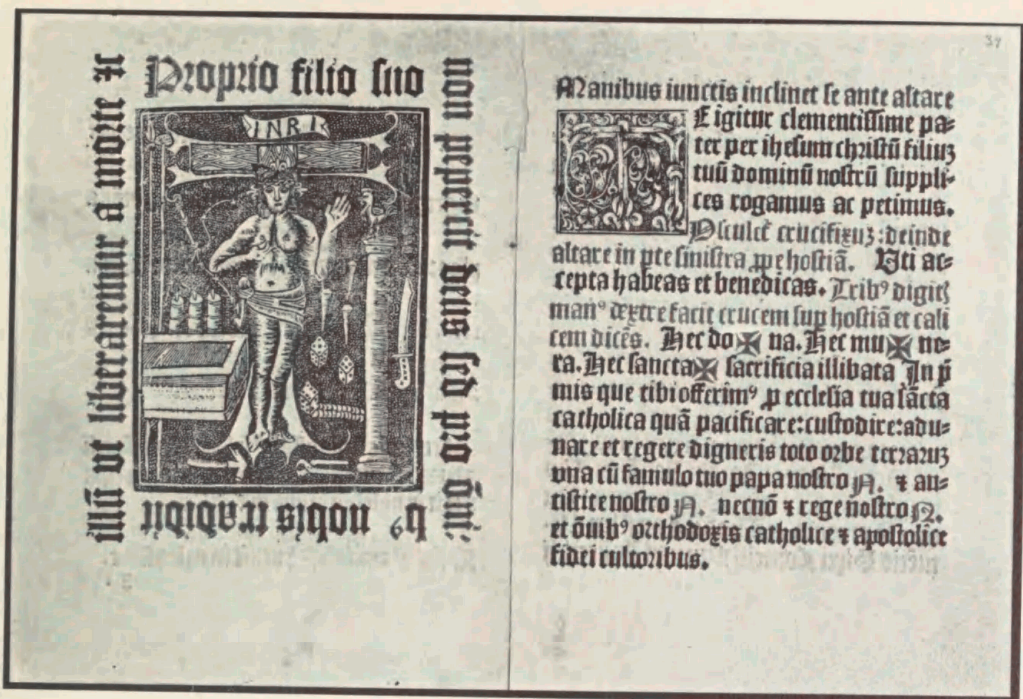 Proprio filio suo
non pepercit deus sed pro oīni
bꝰ nobis tradidit
illū ut liberaremur a morte ⁊c
INRI
37
Manibus iunctis inclinet se ante altare
TE igitur clementissime pa⸗
ter per ihesum christū filiuꝫ
tuū dominū nostrū suppli⸗
ces rogamus ac petimus.
Osculet̄ crucifixuꝫ: deinde
altare in pte sinistra ꝓpe hostiā. Uti ac⸗
cepta habeas et benedicas. Tribꝰ digitꝭ
manꝰ dextre facit crucem suꝑ hostiā et cali
cem dicēs. Hec do ✠ na. Hec mu ✠ ne⸗
ra. Hec sancta ✠ sacrificia illibata In p̄
mis que tibi offerimꝰ ꝓ ecclesia tua sācta
catholica quā pacificare: custodire: adu⸗
nare et regere digneris toto orbe terraruꝫ
vna cū famulo tuo papa nostro N. ⁊ an⸗
tistite nostro N. necnō ⁊ rege nostro N.
et ōnibꝰ orthodoxis catholice ⁊ apostolice
fidei cultoribus.